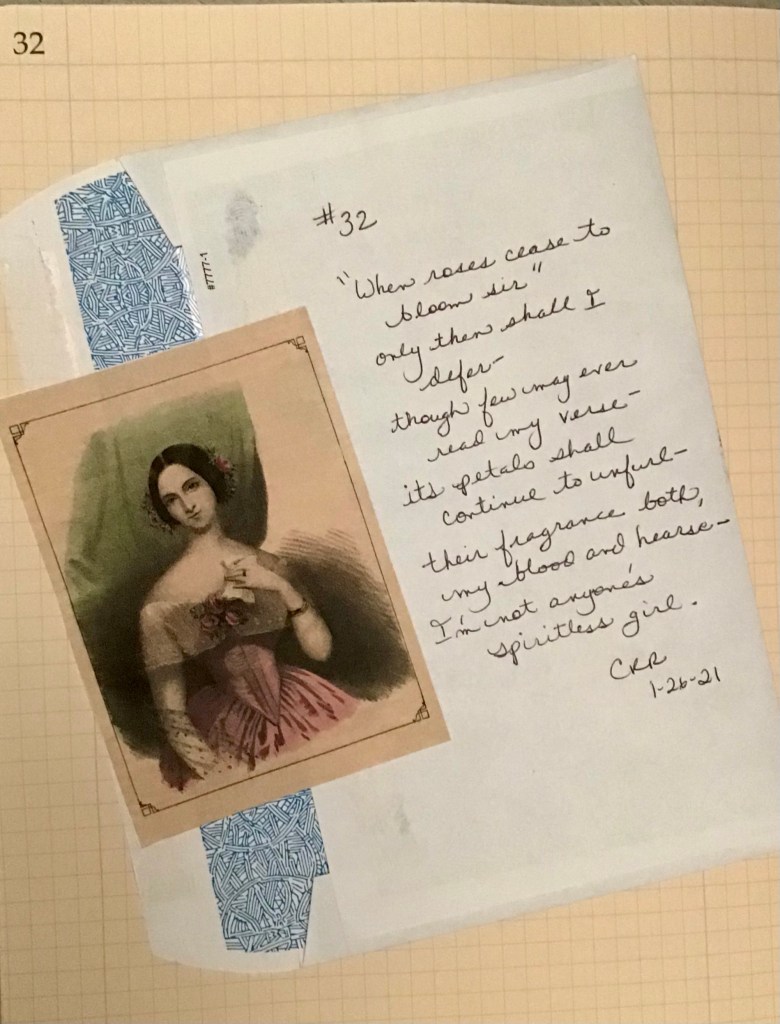 32
#7777-1
#32
"When roses cease to
bloom sir"
only then shall I
defer-
though few may ever
read my verse-
its petals shall
continue to unfurl-
their fragrance both,
my blood and hearse-
I'm not anyone's
spiritless girl.
CRR
1-26-21